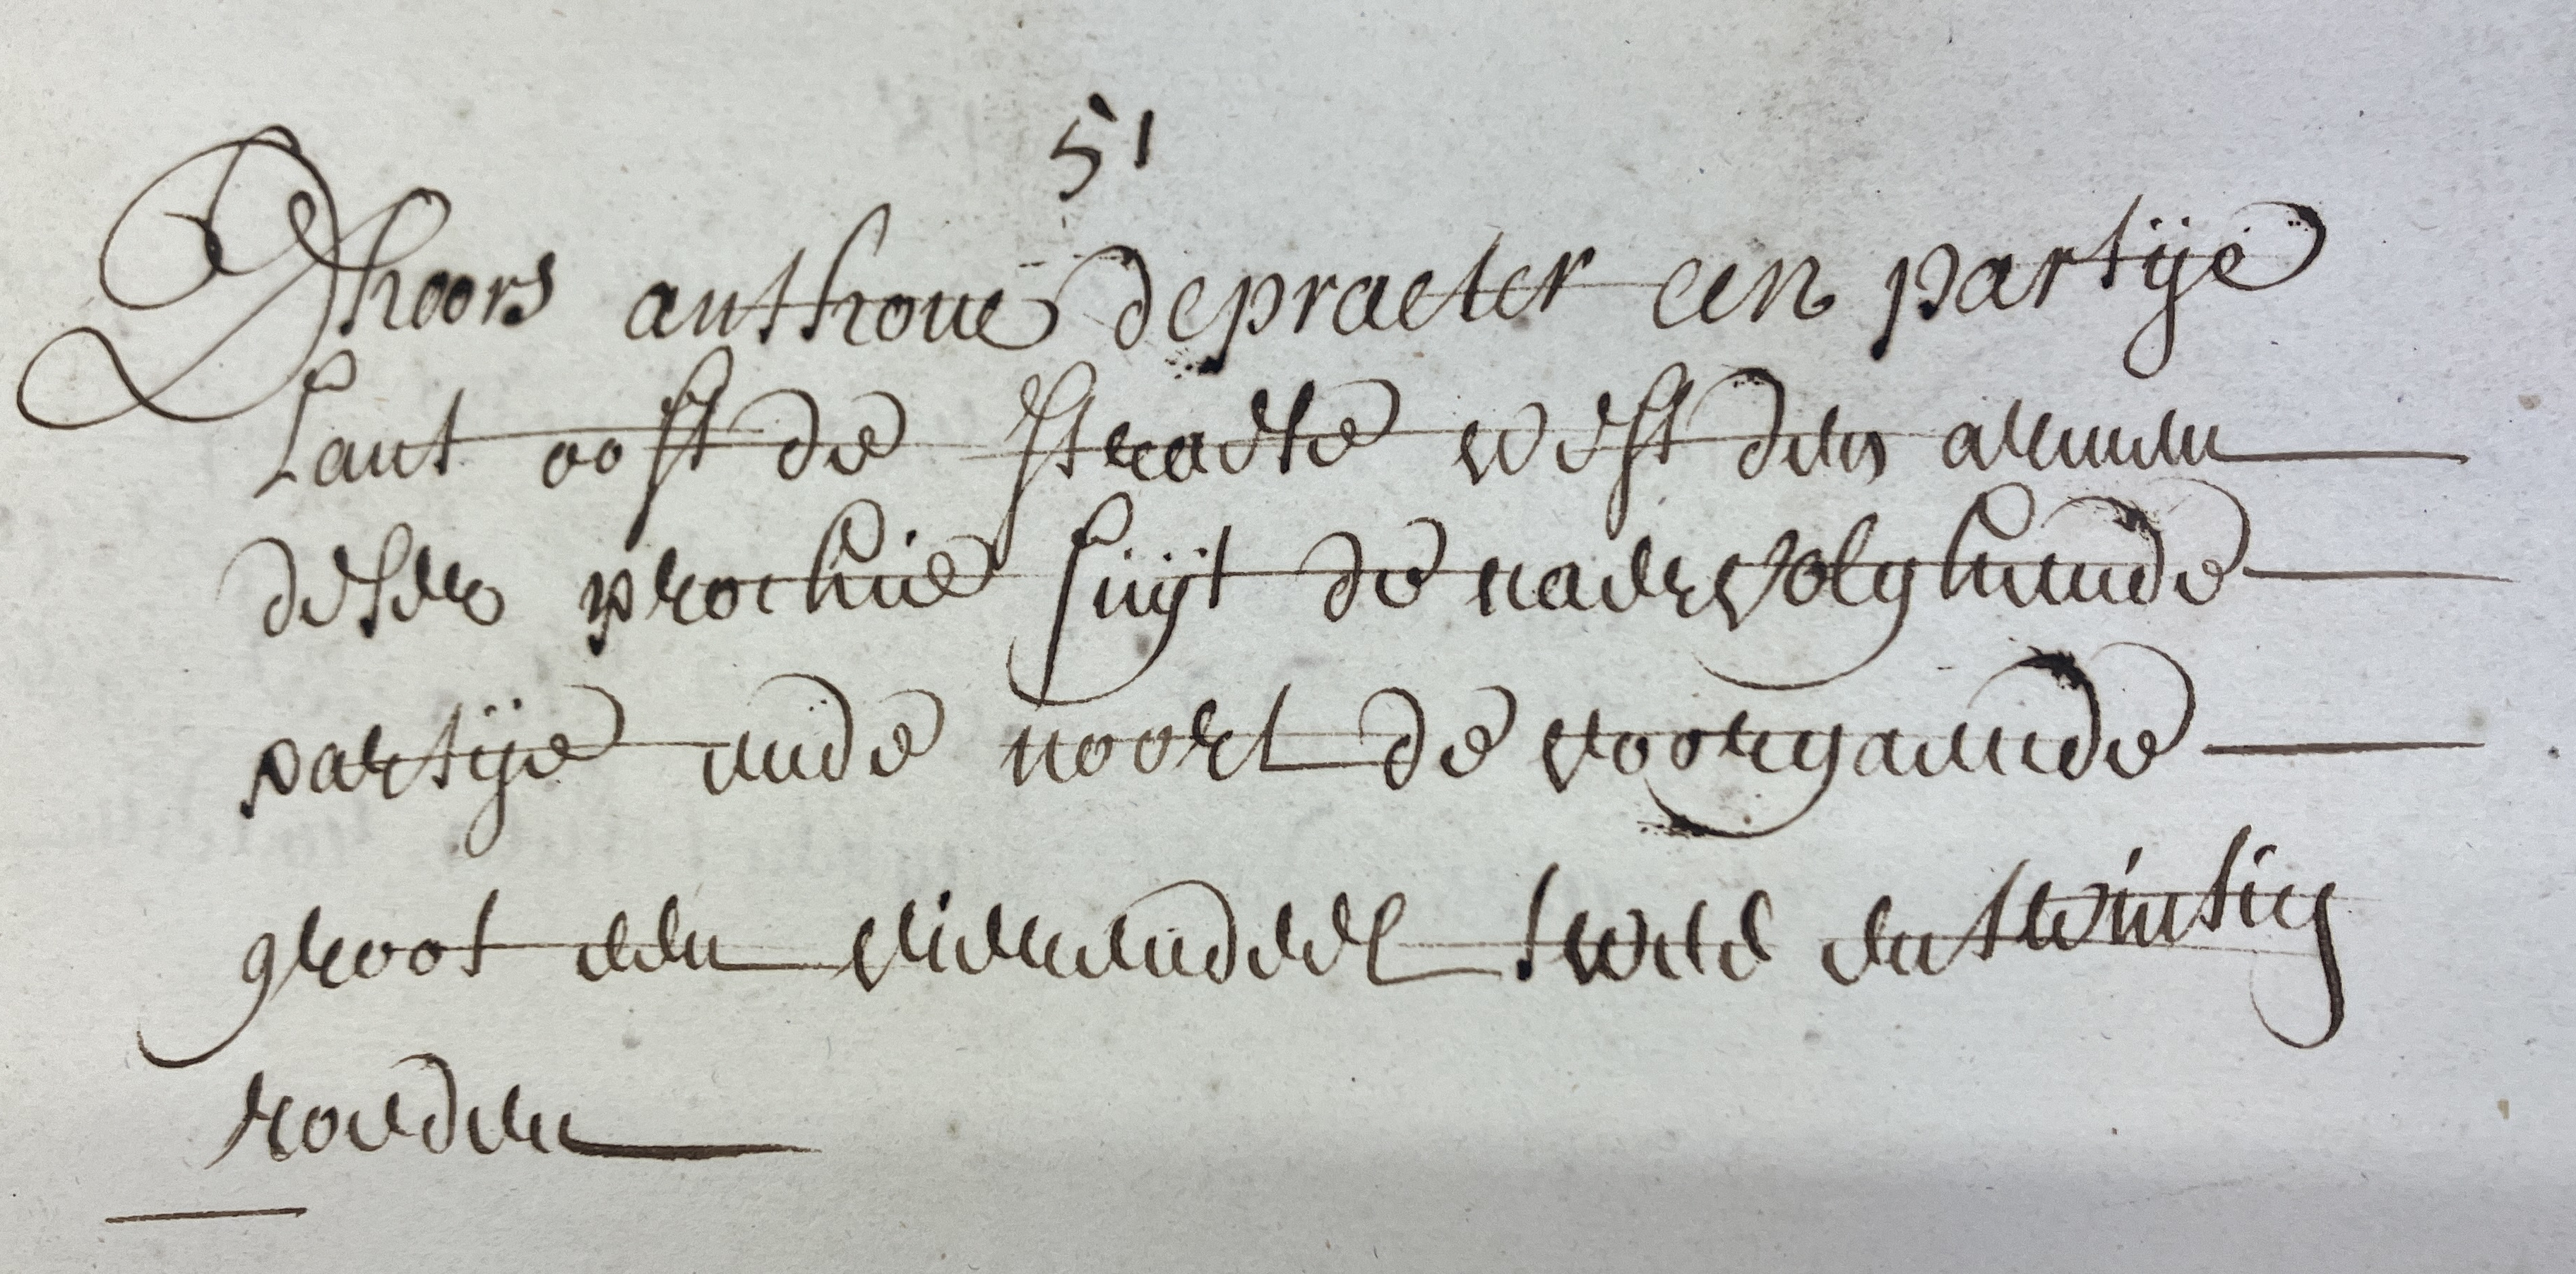 51
Dhoors anthone depraeter een partije
Lant oost de straete west den aermen
deser prochie suyt de naervolghende
partije ende noort de voorgaende
groot een vierendeel twee en twintig
roeden